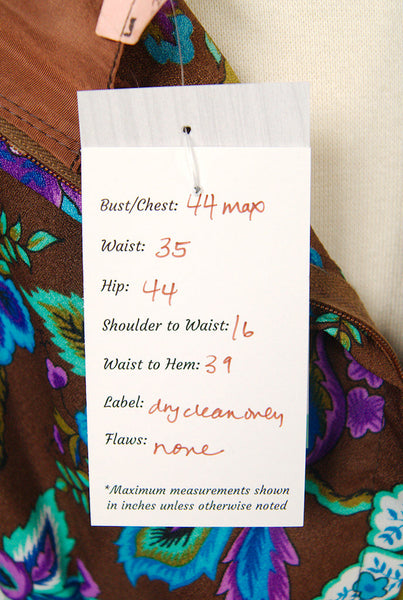 Bust/Chest: 44 max
Waist: 35
Hip: 44
Shoulder to Waist: 16
Waist to Hem: 39
Label: dry clean only
Flaws: none
*Maximum measurements shown
in inches unless otherwise noted